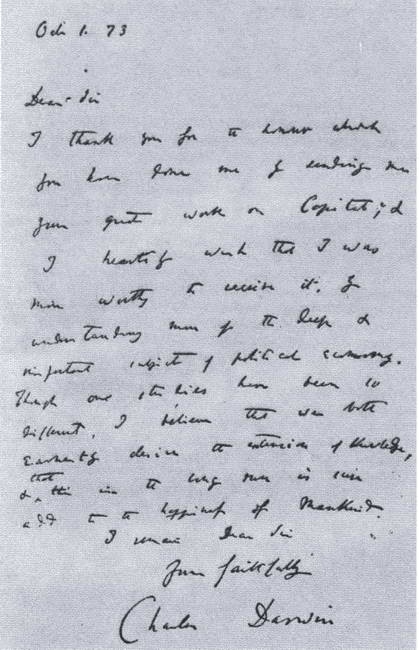 Oct 1. 73
Dear Sir
I thank you for the honour which
you have done me by sending me
your great work on Capital; &
I heartily wish that I was
more worthy to receive it, by
understanding more of the deep &
important subject of political economy.
Though our studies have been so
different, I believe that we both
earnestly desire the extension of Knowledge,
& that this in the long run is sure to
add to the happiness of Mankind.
I remain Dear Sir
Yours faithfully
Charles Darwin